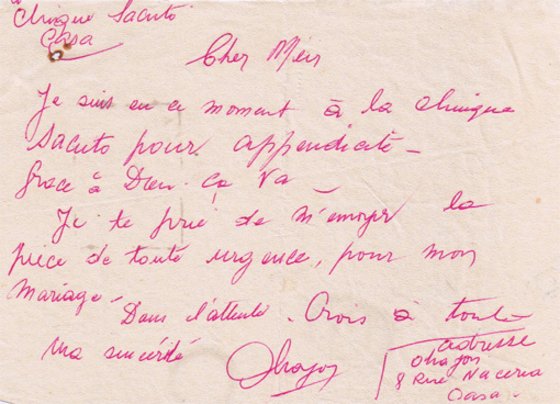 à
Clinique Sacuto
Casa
Cher Méir
Je suis en ce moment à la clinique
Sacuto pour appendicite -
Grace à Dieu ça va -
Je te prie de m'envoyer la
pièce de toute urgence, pour mon
mariage -
Dans l'attente. Crois à toute
ma sincérité
Ohayon
adresse
Ohayon
8 Rue Naceria
Casa.